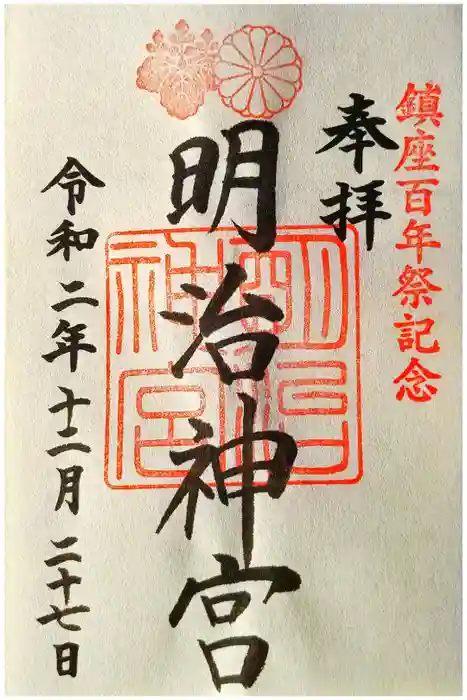 鎮座百年祭記念
奉拝
明治神宮
明治神宮
令和二年十二月二十七日